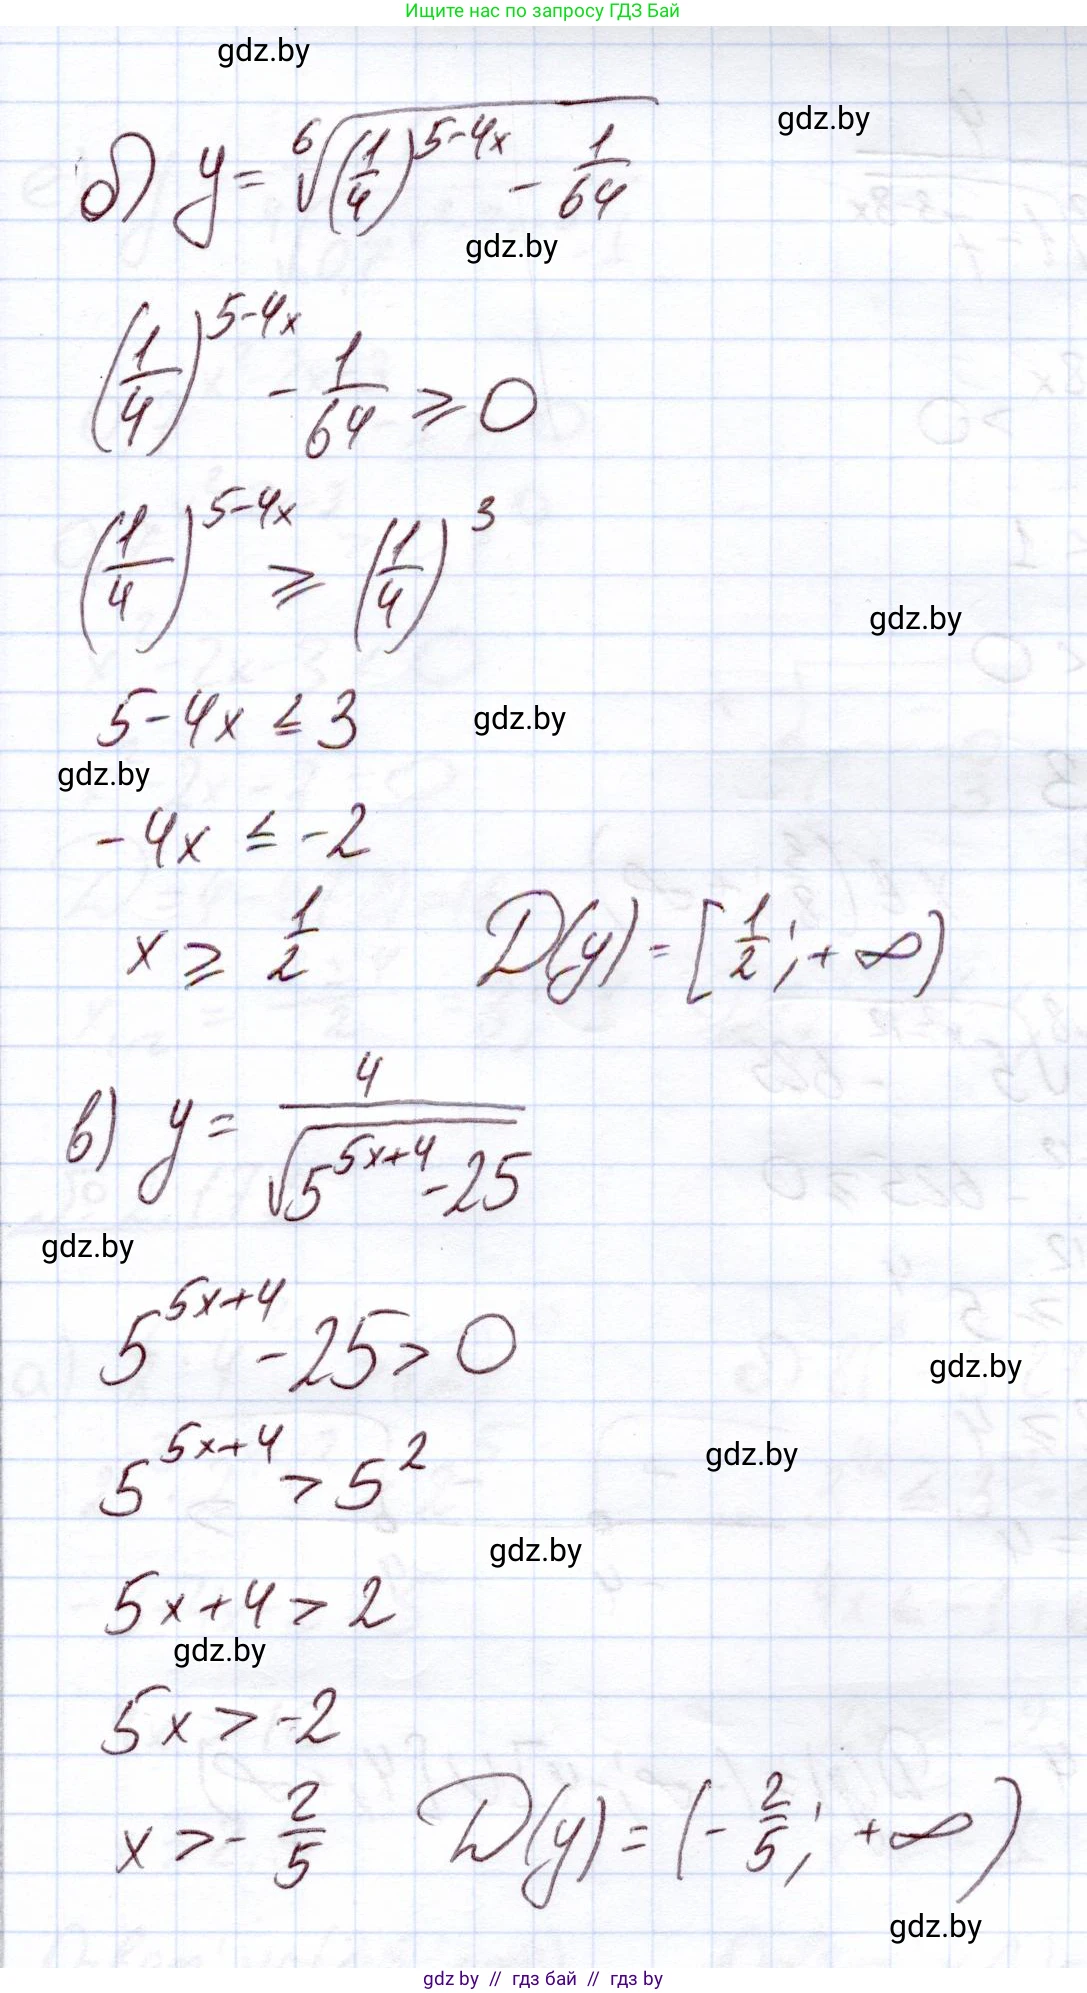 Ищите нас по запросу ГДЗ Бай
gdz.by
б) y = ⁶√((1/4)^(5-4x) - 1/64)
gdz.by
gdz.by
(1/4)^(5-4x) - 1/64 ⩾ 0
(1/4)^(5-4x) ⩾ (1/4)^3
gdz.by
5-4x ≤ 3
gdz.by
gdz.by
-4x ≤ -2
x ⩾ 1/2 D(y) = [1/2; +∞)
в) y = 4/√(5^(5x+4) - 25)
gdz.by
5^(5x+4) - 25 > 0
gdz.by
5^(5x+4) > 5^2
gdz.by
gdz.by
5x+4 > 2
gdz.by
5x > -2
x > -2/5 D(y) = (-2/5; +∞)
gdz.by
gdz by // гдз бай // гдз by